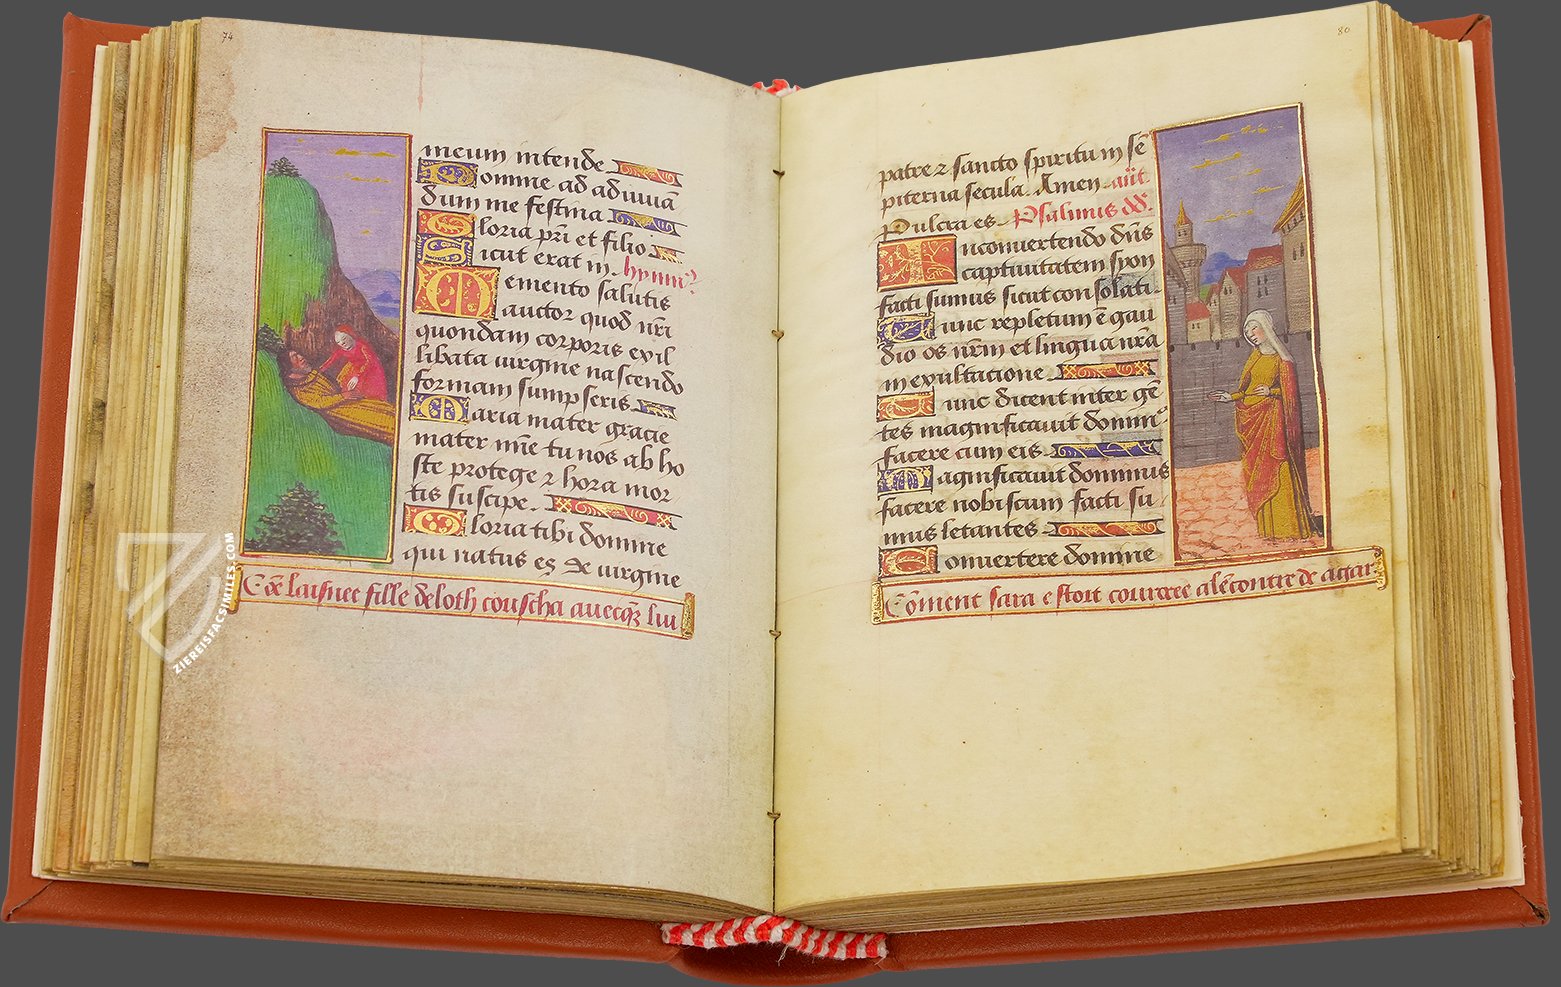 74
meum intende
Domine ad adiuua
dum me festina
Gloria pri et filio
Sicut erat in. hymn9
Memento salutis
auctor quod nri
quondam corporis ex il
libata uirgine nascendo
formam sumpseris.
Maria mater gracie
mater mie tu nos ab ho
ste protege ⁊ hora mor
tis suscipe.
Gloria tibi domine
qui natus es de uirgine
Cõe laisnee fille de loth coucha auecq3 luy
80
patre ⁊ sancto spiritu in sẽ
piterna secula. Amen. añt
Pulcra es. Psalmus dd.
In conuertendo dñs
captiuitatem syon
facti sumus sicut consolati.
Tunc repletum ẽ gau
dio os nrm et lingua nra
in exultacione.
Tunc dicent inter gẽ
tes magnificauit domin9
facere cum eis.
Magnificauit dominus
facere nobiscum facti su
mus letantes.
Conuertere domine
Cõment sara estoit courcee alẽcontre de agar.
ZIEREISFACSIMILES.COM